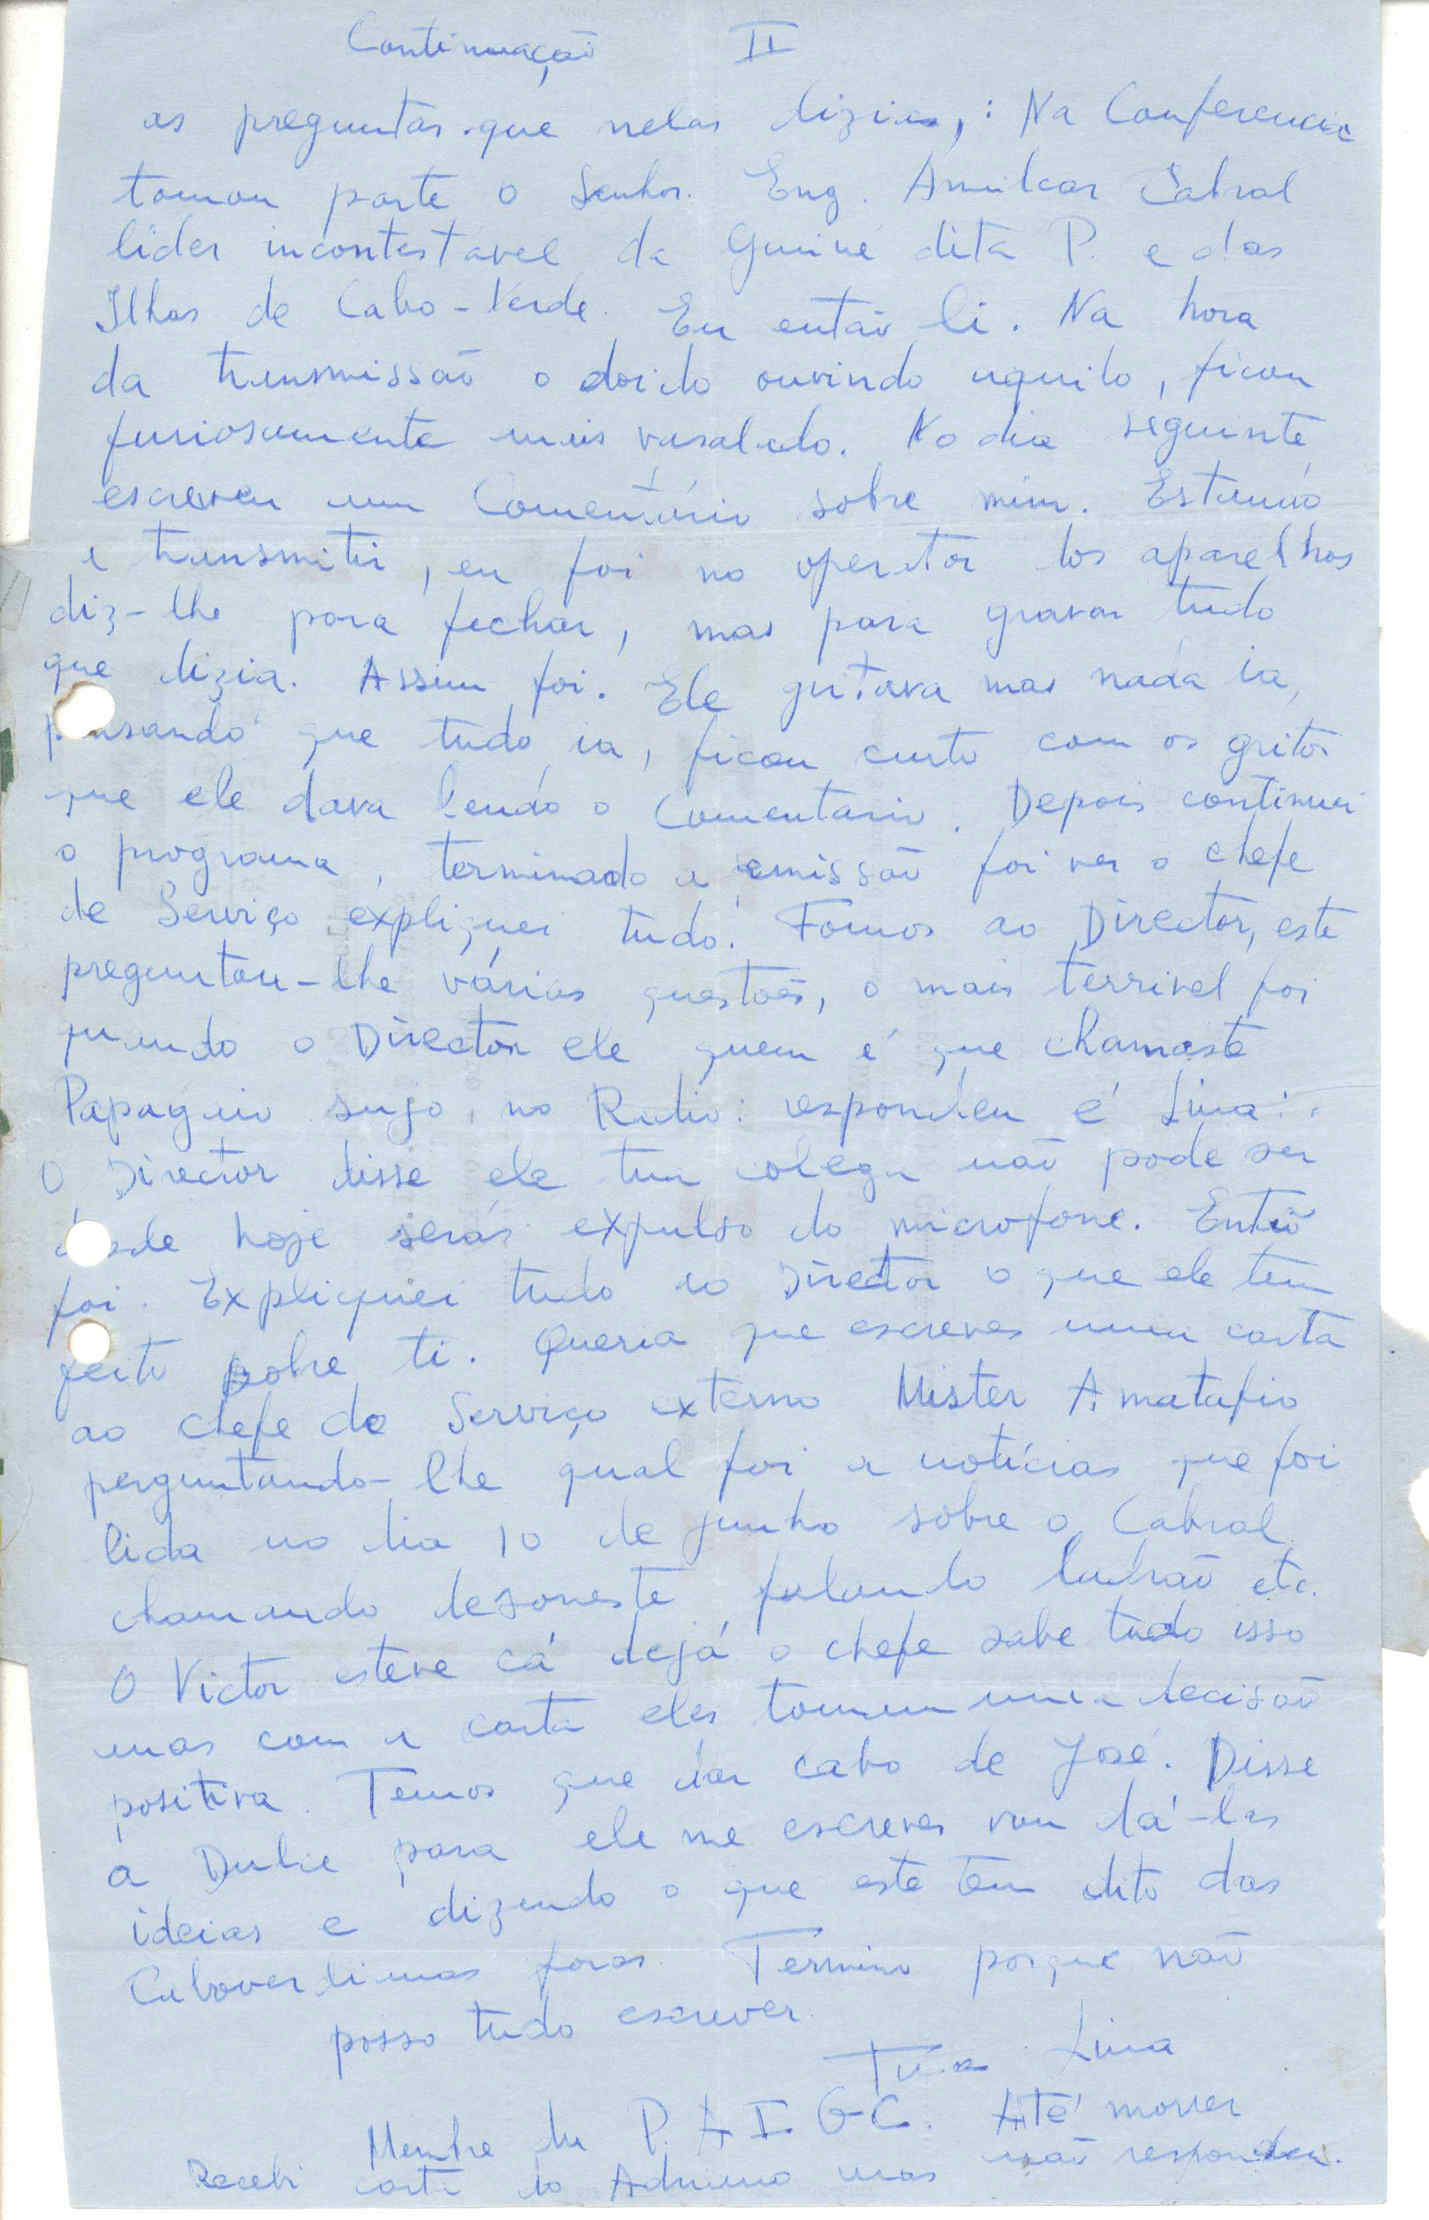 Continuação II
as preguntas que nelas dizia,: Na Conferencia
tomou parte o Senhor. Eng. Amilcar Cabral
lider incontestável da Guiné dita P. e das
Ilhas de Cabo-Verde. Eu então li. Na hora
da transmissão o doido ouvindo aquilo, ficou
furiosamente mais vasalado. No dia seguinte
escreveu um Comentário sobre mim. Estando
a transmitir, eu foi no operator dos aparelhos
diz-lhe para fechar, mas para gravar tudo
que dizia. Assim foi. Ele gritava mas nada ia,
pensando que tudo ia, ficou curto com os gritos
que ele dava lendo o Comentario. Depois continuei
o programa, terminado a emissão foi ver o chefe
de Serviço expliquei tudo. Fomos ao Director, este
preguntou-lhe várias questoẽs, o mais terrivel foi
quando o Director ele quem é que chamaste
Papagaio sujo, no Radio: respondeu é Lina:.
O Director disse ele tua colega não pode ser
desde hoje serás expulso do microfone. Então
foi. Expliquei tudo ao Director o que ele tem
feito sobre ti. Queria que escreves uma carta
ao chefe do Serviço externo Mister Amatafio
perguntando-lhe qual foi a notícias que foi
lida no dia 10 de junho sobre o Cabral
chamando desoneste falando ladrão etc.
O Victor esteve cá dejá o chefe sabe tudo isso
mas com a carta eles tomam uma decisão
positiva. Temos que dar cabo de José. Disse
a Dulce para ele me escreves vou dá-las
ideias e dizendo o que este tem dito das
Caboverdianas foras. Termino porque não
posso tudo escrever.
Tua Lina
Membre du P.AIGC. Até morrer
Recebi carta do Adriano mas não respondeu.